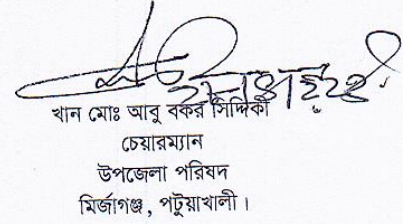 খান মোঃ আবু বকর সিদ্দিকী
চেয়ারম্যান
উপজেলা পরিষদ
মির্জাগঞ্জ, পটুয়াখালী।